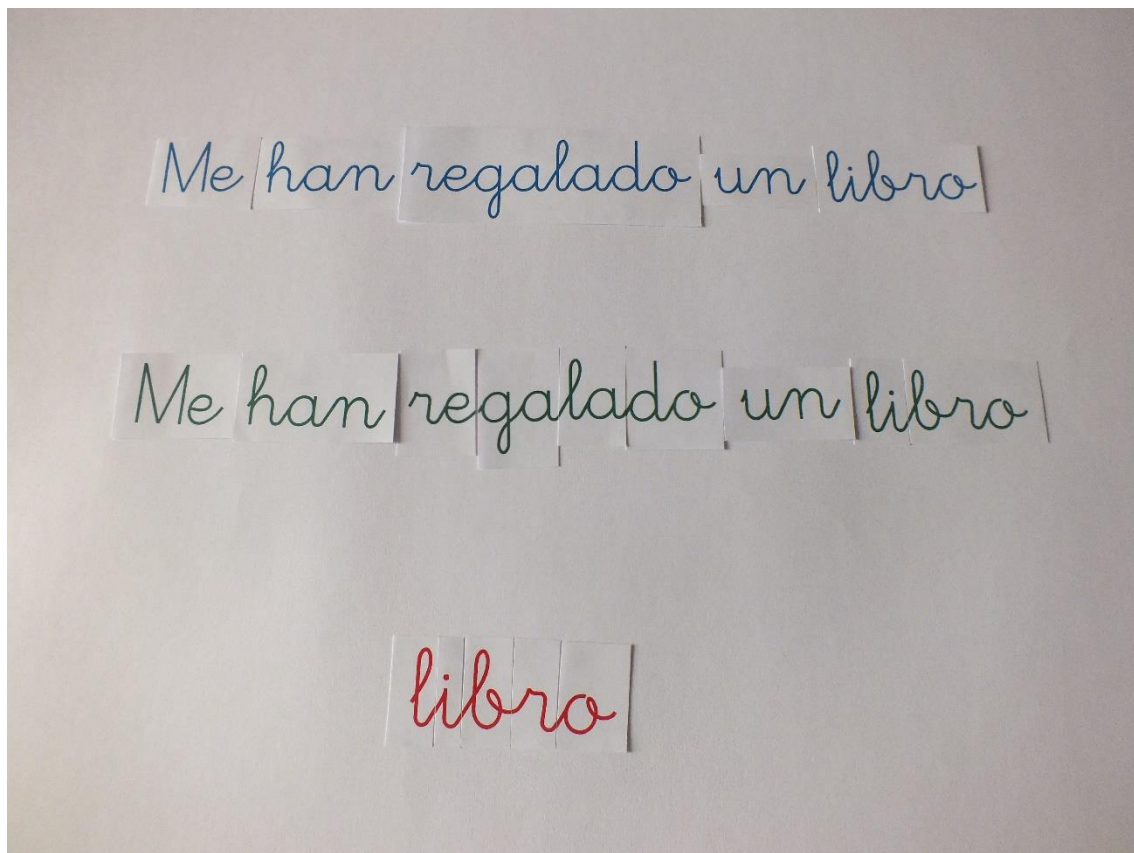 Me han regalado un libro
Me han regalado un libro
libro